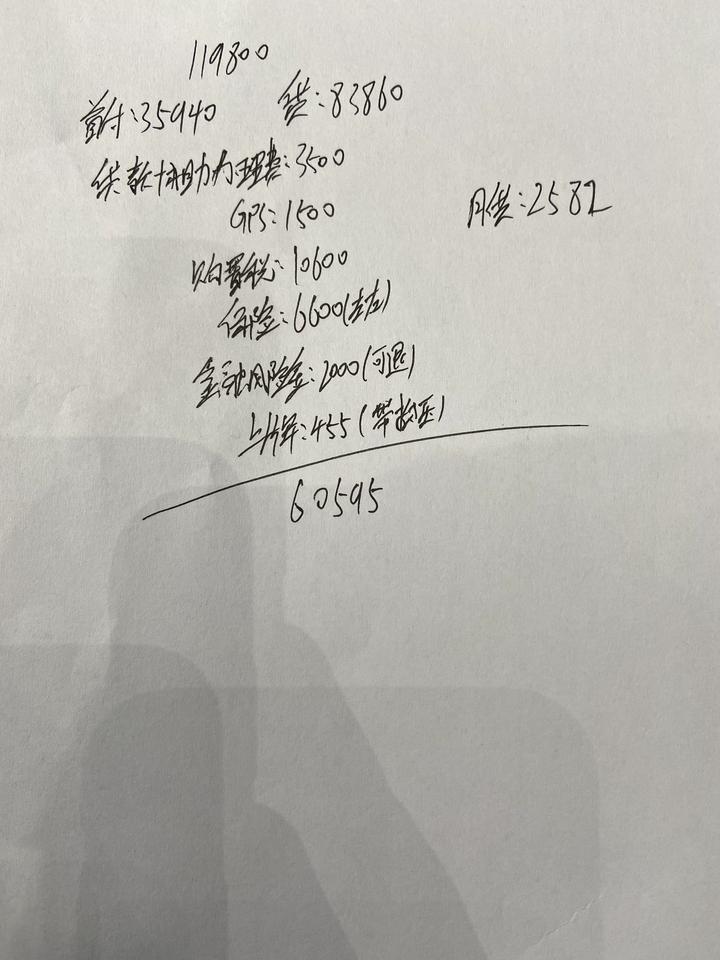 119800
首付:35940 贷:83860
贷款协助办理费:3500
GPS:1500 月贷:2582
购置税:10600
保险:6600(左右)
金融风险金:2000(可退)
上牌:455(带抵压)
60595